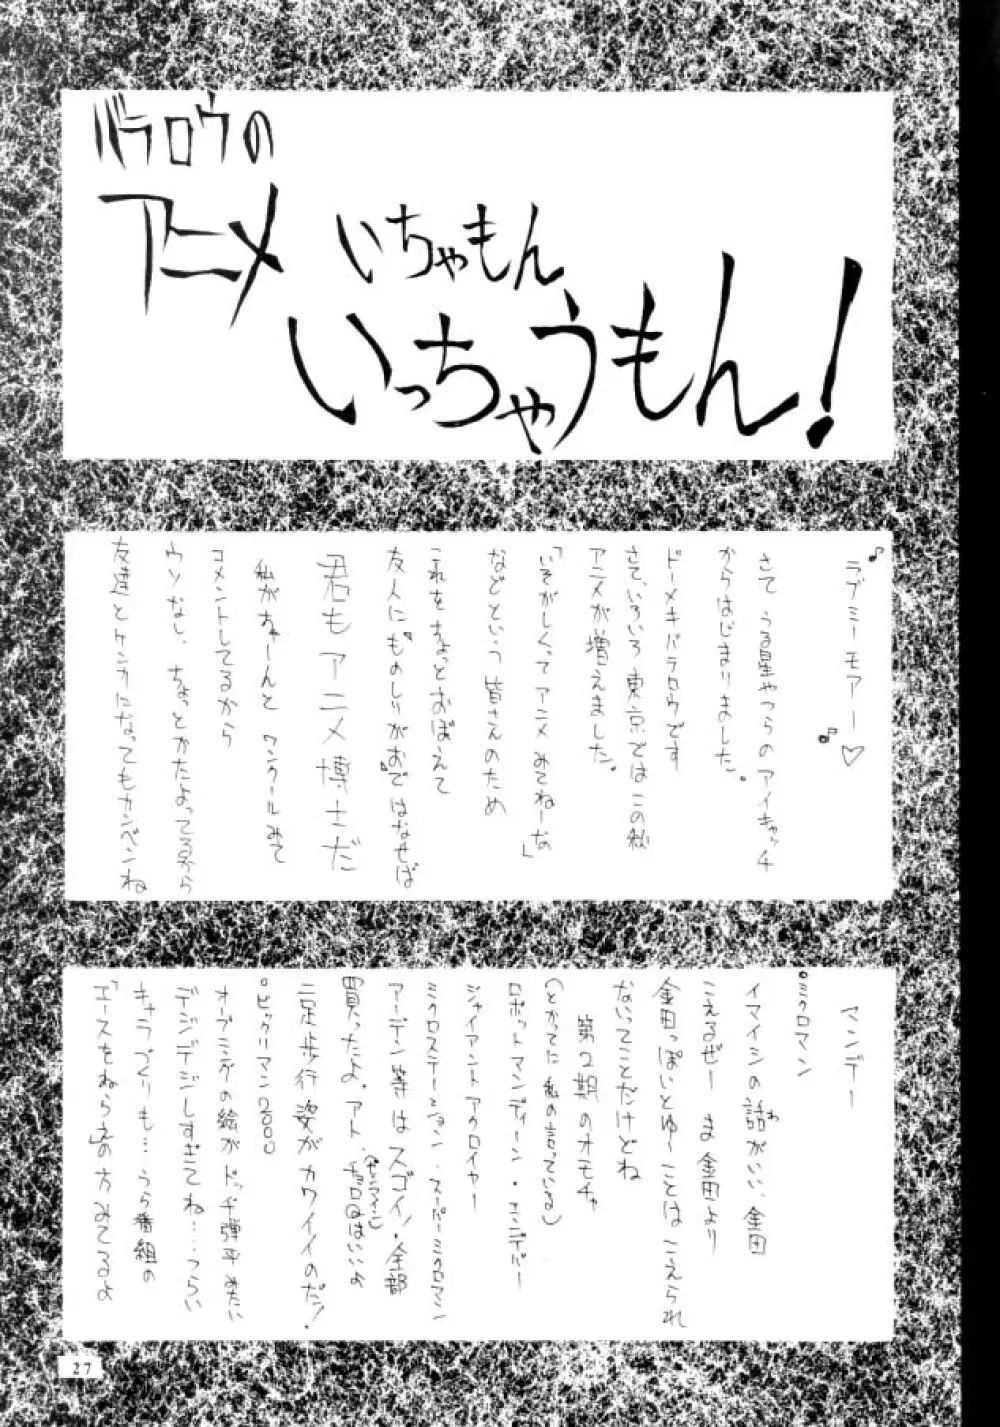 バラロウの
アニメ
いちゃもん
いっちゃうもん!
♪ラブミーモアー♪♡
さて うる星やつらのアイキャッチ
からはじまりました。
ドーメキバラロウです
さて、いろいろ東京ではこの秋
アニメが増えました。
「いそがしくってアニメみてねーなぁ」
などという皆さんのため
これをちょっとおぼえて
友人に"ものしりがお"ではなせば
君もアニメ博士だ
私がちゃーんと ワンクールみて
コメントしてるから
ウソなし、ちょっとかたよってるから
友達とケンカになってもカンベンね
マンデー
°ミクロマン
イマイシの話がいい、金田
わ
こえるぜー ま 金田より
金田っぽいとゆーことは こえられ
ないってことだけどね
第2期のオモチャ
(とかってに私の言っている)
ロボットマンディーン・エンデバー
ジャイアントアクロイヤー
ミクロステーション・スーパーミクロマン
アーデン等はスゴイ!全部
買ったよ。アト、チョロQはいいよ
二足歩行姿がカワイイのだ!
°ビックリマン2000
オープニングの絵がドッヂ弾平みたいに
デジデジしすぎてね…つらい
キャラづくりも…うら番組の
『エースをねらえ』の方みてるよ
27